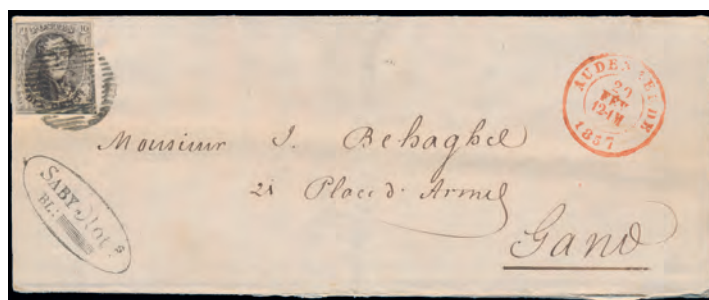 AUDENAERDE
FEV
12-1M
1857
Monsieur J. Behaghel
21 Place d'Armes
Gand
SABY Not
BL: